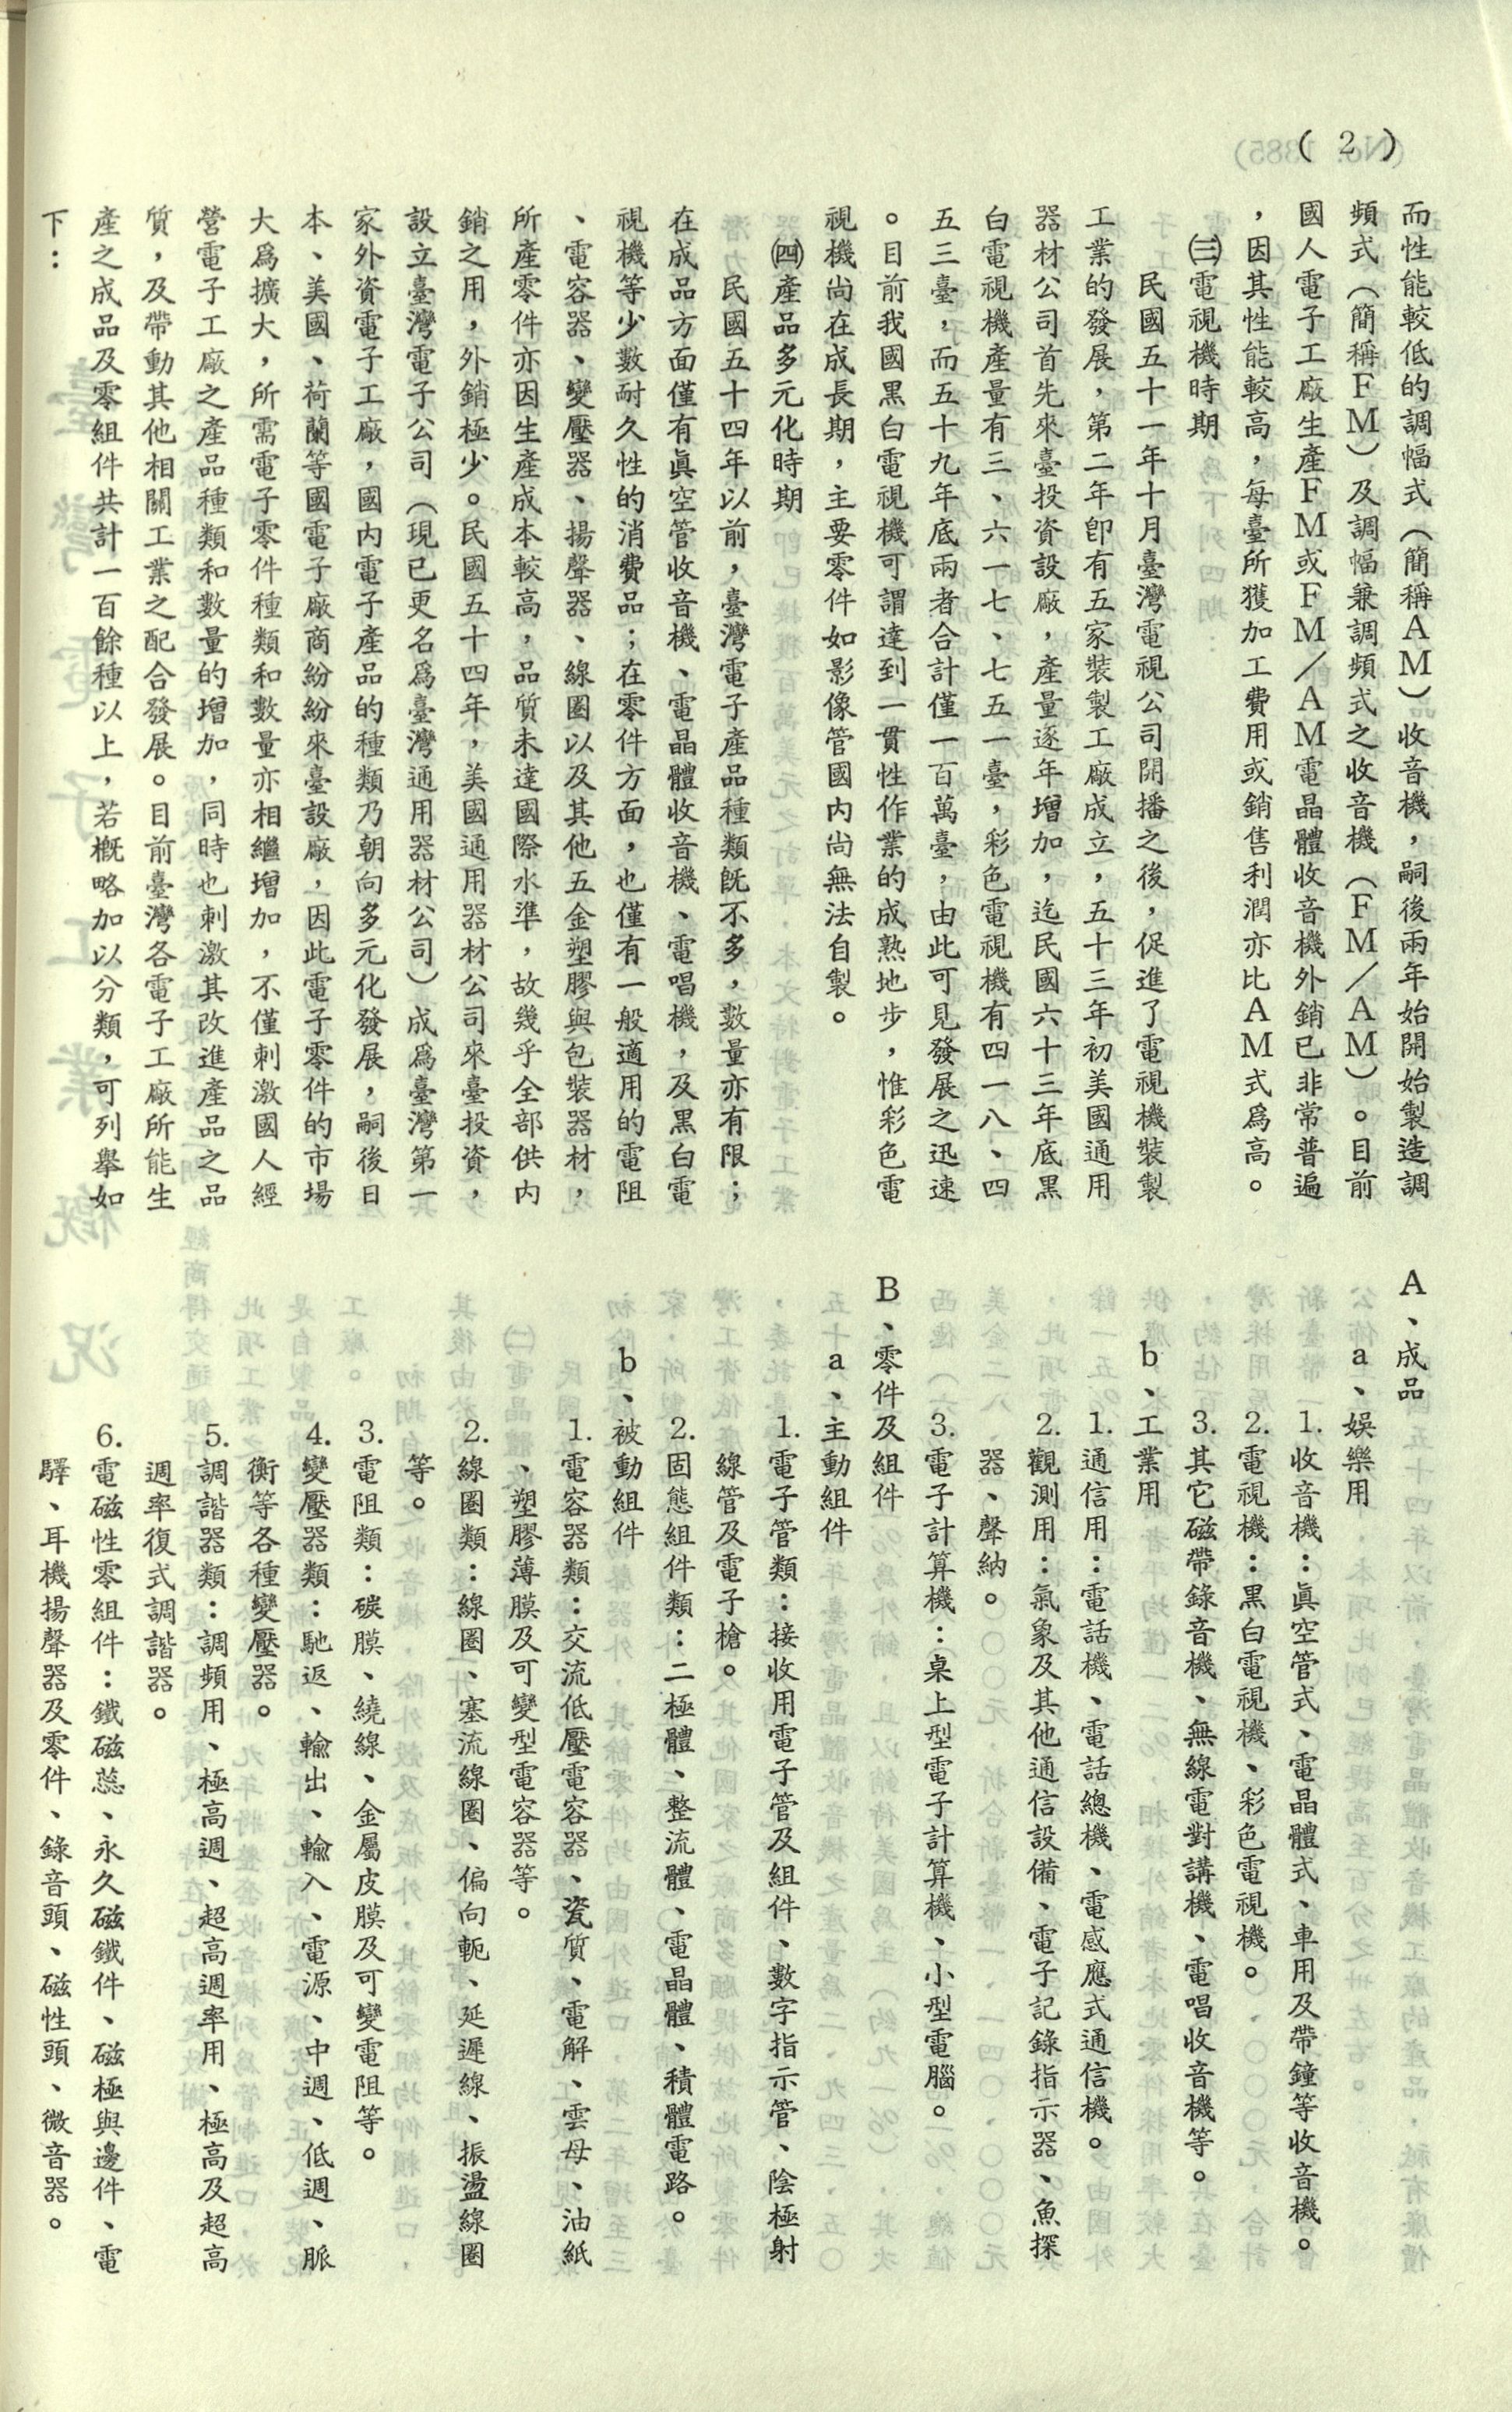 ( 2 )
而性能較低的調幅式（簡稱ＡＭ）收音機，嗣後兩年始開始製造調
頻式（簡稱ＦＭ）及調幅兼調頻式之收音機（ＦＭ／ＡＭ）。目前
國人電子工廠生產ＦＭ或ＦＭ／ＡＭ電晶體收音機外銷已非常普遍
，因其性能較高，每臺所獲加工費用或銷售利潤亦比ＡＭ式爲高。
㈢電視機時期
民國五十一年十月臺灣電視公司開播之後，促進了電視機裝製
工業的發展，第二年卽有五家裝製工廠成立，五十三年初美國通用
器材公司首先來臺投資設廠，產量逐年增加，迄民國六十三年底黑
白電視機產量有三、六一七、七五一臺，彩色電視機有四一八、四
五三臺，而五十九年底兩者合計僅一百萬臺，由此可見發展之迅速
。目前我國黑白電視機可謂達到一貫性作業的成熟地步，惟彩色電
視機尚在成長期，主要零件如影像管國內尚無法自製。
㈣產品多元化時期
民國五十四年以前，臺灣電子產品種類旣不多，數量亦有限；
在成品方面僅有眞空管收音機、電晶體收音機、電唱機，及黑白電
視機等少數耐久性的消費品；在零件方面，也僅有一般適用的電阻
、電容器、變壓器、揚聲器、線圈以及其他五金塑膠與包裝器材，
所產零件亦因生產成本較高，品質未達國際水準，故幾乎全部供內
銷之用，外銷極少。民國五十四年，美國通用器材公司來臺投資，
設立臺灣電子公司（現已更名爲臺灣通用器材公司）成爲臺灣第一
家外資電子工廠，國內電子產品的種類乃朝向多元化發展，嗣後日
本、美國、荷蘭等國電子廠商紛紛來臺設廠，因此電子零件的市場
大爲擴大，所需電子零件種類和數量亦相繼增加，不僅刺激國人經
營電子工廠之產品種類和數量的增加，同時也刺激其改進產品之品
質，及帶動其他相關工業之配合發展。目前臺灣各電子工廠所能生
產之成品及零組件共計一百餘種以上，若概略加以分類，可列舉如
下：
A、成品
a、娛樂用
1.收音機：眞空管式、電晶體式、車用及帶鐘等收音機。
2.電視機：黑白電視機、彩色電視機。
3.其它磁帶錄音機、無線電對講機、電唱收音機等。
b、工業用
1.通信用：電話機、電話總機、電感應式通信機。
2.觀測用：氣象及其他通信設備、電子記錄指示器、魚探
器、聲納。
3.電子計算機：桌上型電子計算機、小型電腦。
B、零件及組件
a、主動組件
1.電子管類：接收用電子管及組件、數字指示管、陰極射
線管及電子槍。
2.固態組件類：二極體、整流體、電晶體、積體電路。
b、被動組件
1.電容器類：交流低壓電容器、瓷質、電解、雲母、油紙
、塑膠薄膜及可變型電容器等。
2.線圈類：線圈、塞流線圈、偏向軛、延遲線、振盪線圈
等。
3.電阻類：碳膜、繞線、金屬皮膜及可變電阻等。
4.變壓器類：馳返、輸出、輸入、電源、中週、低週、脈
衡等各種變壓器。
5.調諧器類：調頻用、極高週、超高週率用、極高及超高
週率復式調諧器。
6.電磁性零組件：鐵磁蕊、永久磁鐵件、磁極與邊件、電
驛、耳機揚聲器及零件、錄音頭、磁性頭、微音器。